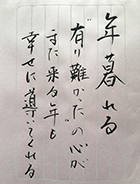 年暮れる
“有り難かった”の心が
また来る年も
幸せに導いてくれる